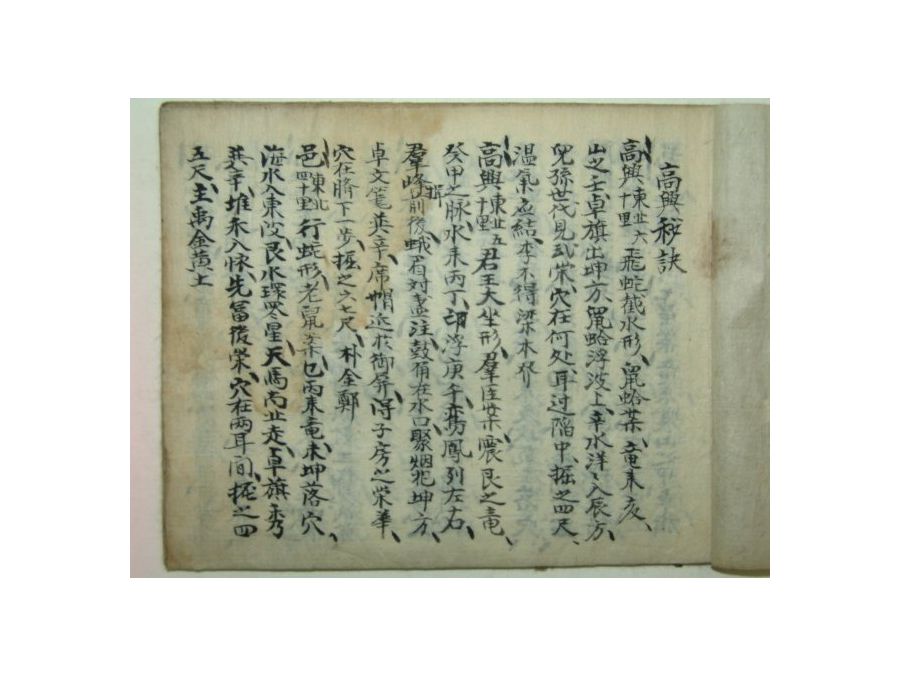 高興秘訣
高興東北六十里飛蛇截水形、鼠蛤案、竜來亥、
山之士卓旗出坤方、鼠蛤浮波上、辛水洋々入辰方、
兒孫世代見武榮、穴在何処耳过陷中、掘之四尺、
温氣应結、李不得梁木
高興東北五十里君王大坐形、羣臣案、震艮之竜、
癸甲之脉、水來丙丁、浮庚千、鳳列左右、
羣峰前後帽、眉对盞注、鼓角在水口聚、烟花坤方、
卓文笔巽辛、席帽近於御屏、得子房之榮華、
穴在臍下一步、掘之六七尺、朴金鄭
邑東北四十里行蛇形、老鼠案、巳丙來竜、未坤落穴、
海水入東、艮水環零星、天馬向北走、卓旗秀
巽辛、堆禾入怀、先富後榮、穴在兩耳間、掘之四
五尺、主禹金黄土